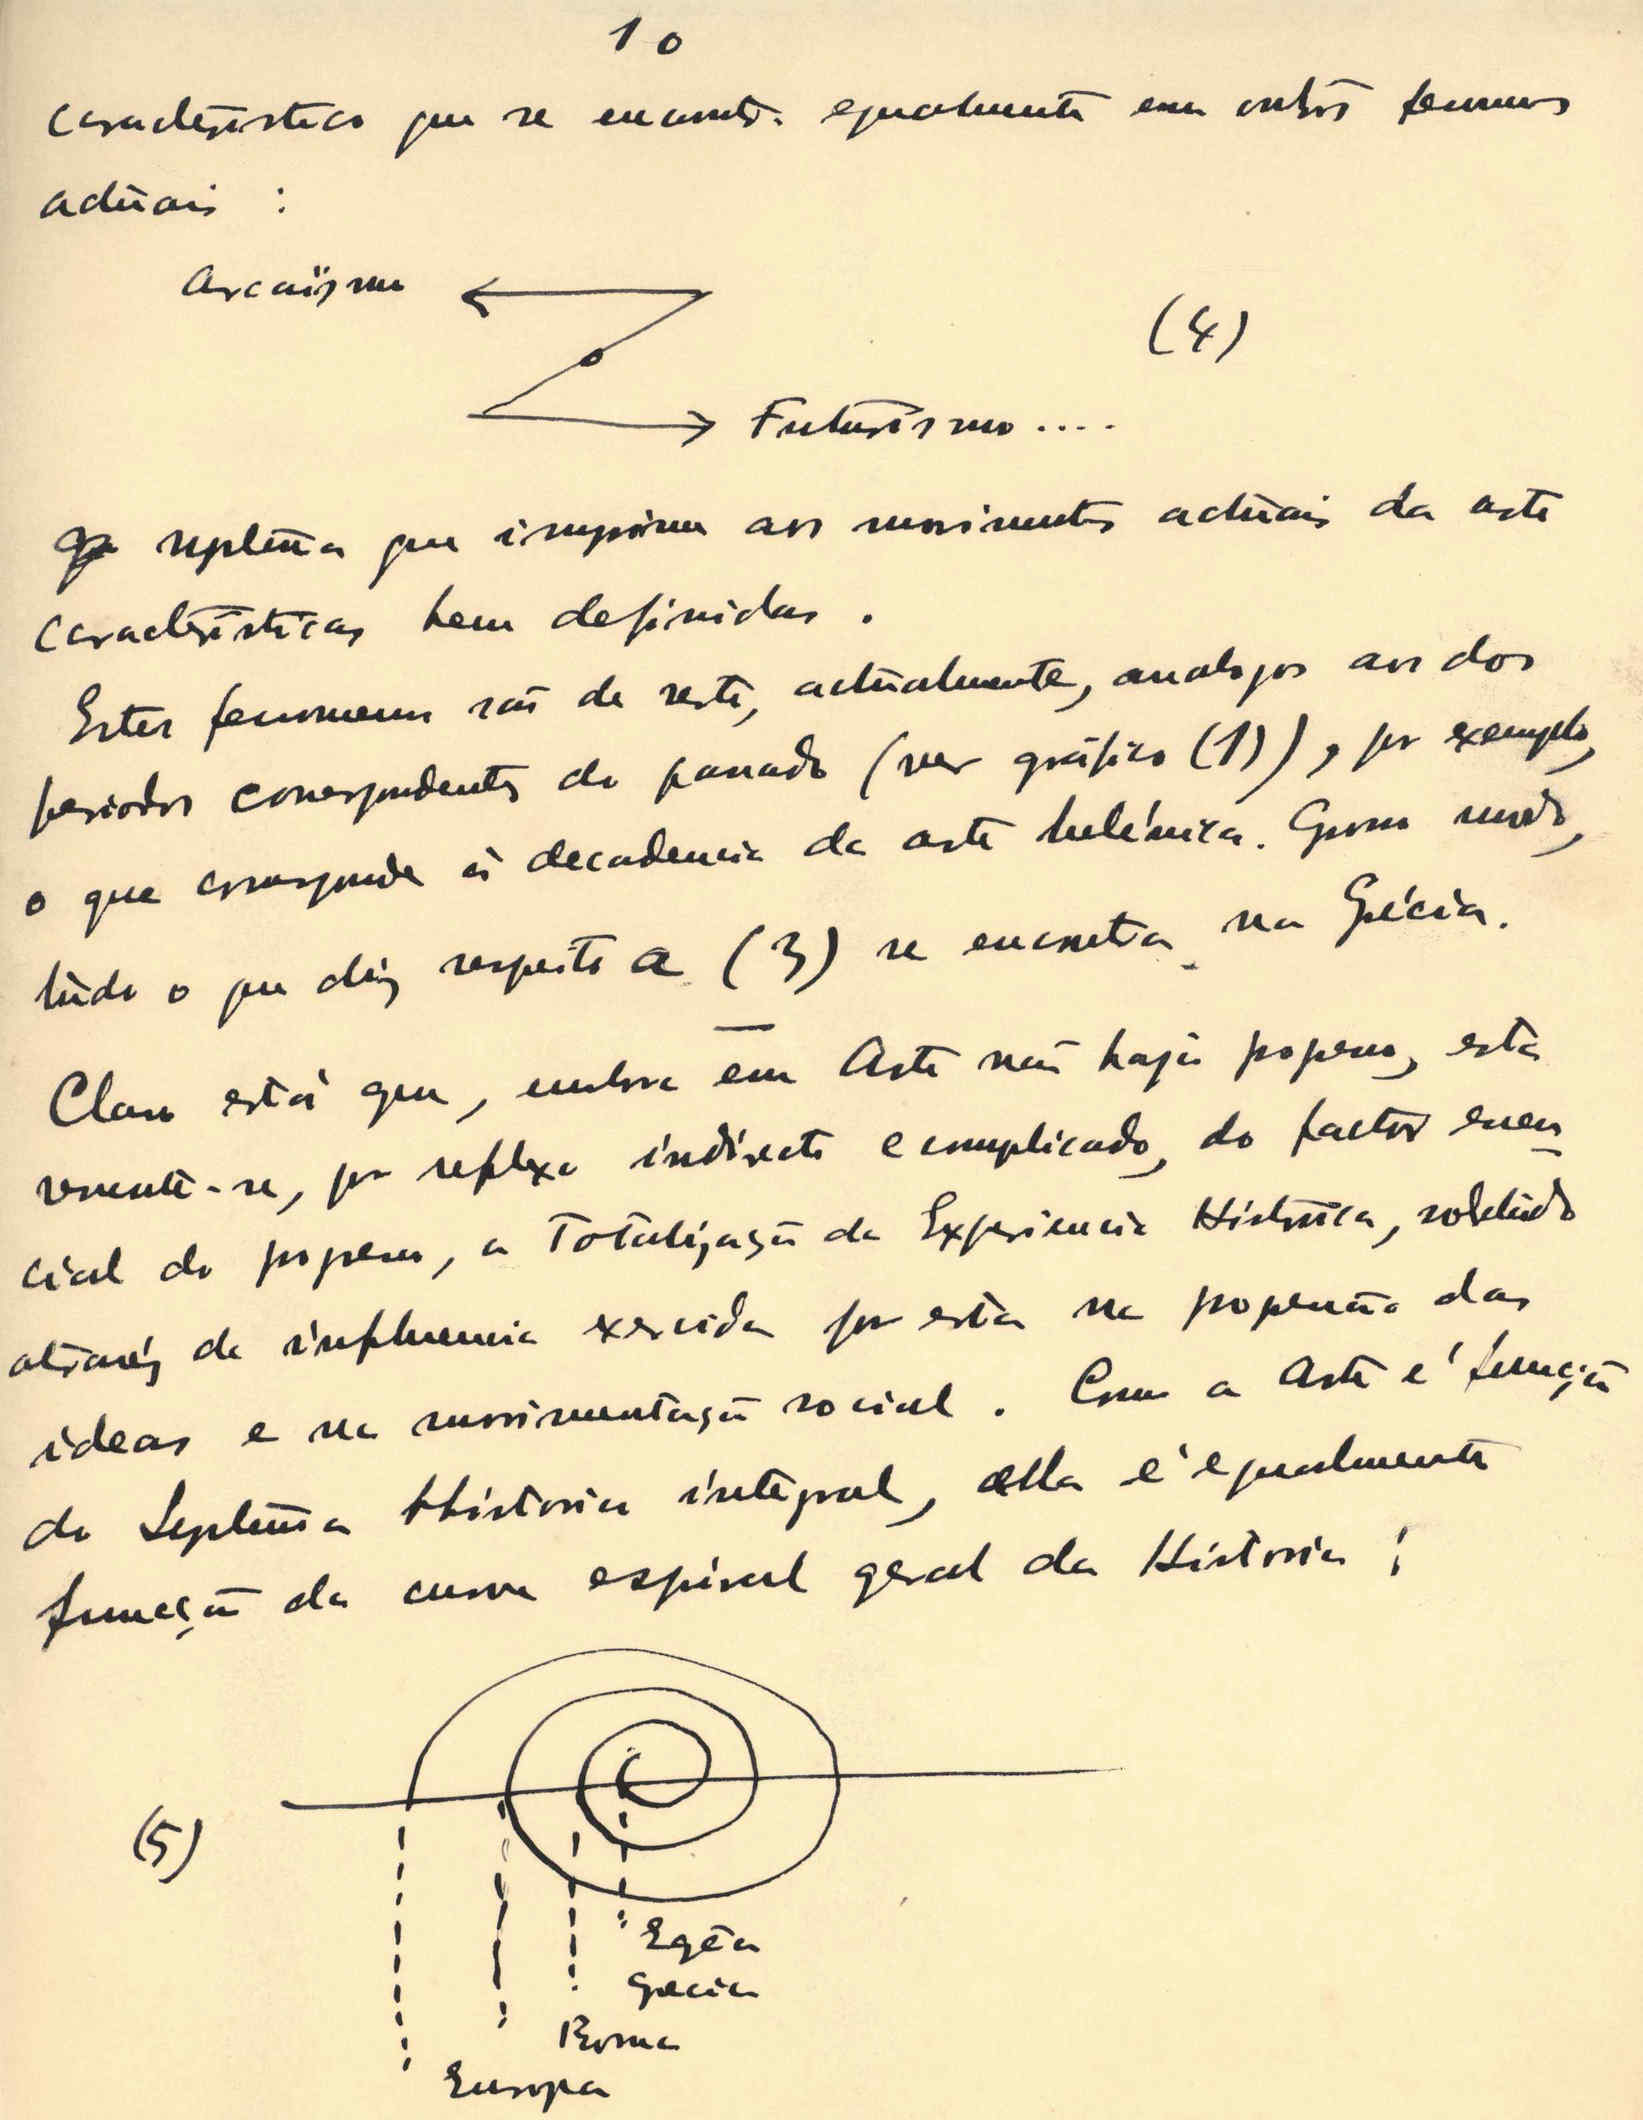 10
característica que se encontra egualmente em outros fenomenos
actuais :
Arcaïsmo
(4)
Futurismo ....
ruptura que imprime aos movimentos actuais da arte
características bem definidas .
Estes fenomenos são de resto, actualmente, analogos aos dos
periodos correspondentes do passado (ver gráfico (1)), por exemplo,
o que corresponde á decadencia da arte helénica. Grosso modo,
tudo o que diz respeito a (3) se encontra na Grécia.
Claro está que, embora em Arte não haja progresso, esta
resente-se, por reflexo indirecto e complicado, do factor essen
cial do progresso, a Totalização da Experiencia Histórica, sobretudo
através da influencia exercida por esta na progressão das
ideas e na movimentação social . Como a Arte é função
da Historia integral, ella é egualmente
função da curva espiral geral da Historia :
(5)
Egêa
Grecia
Roma
Europa